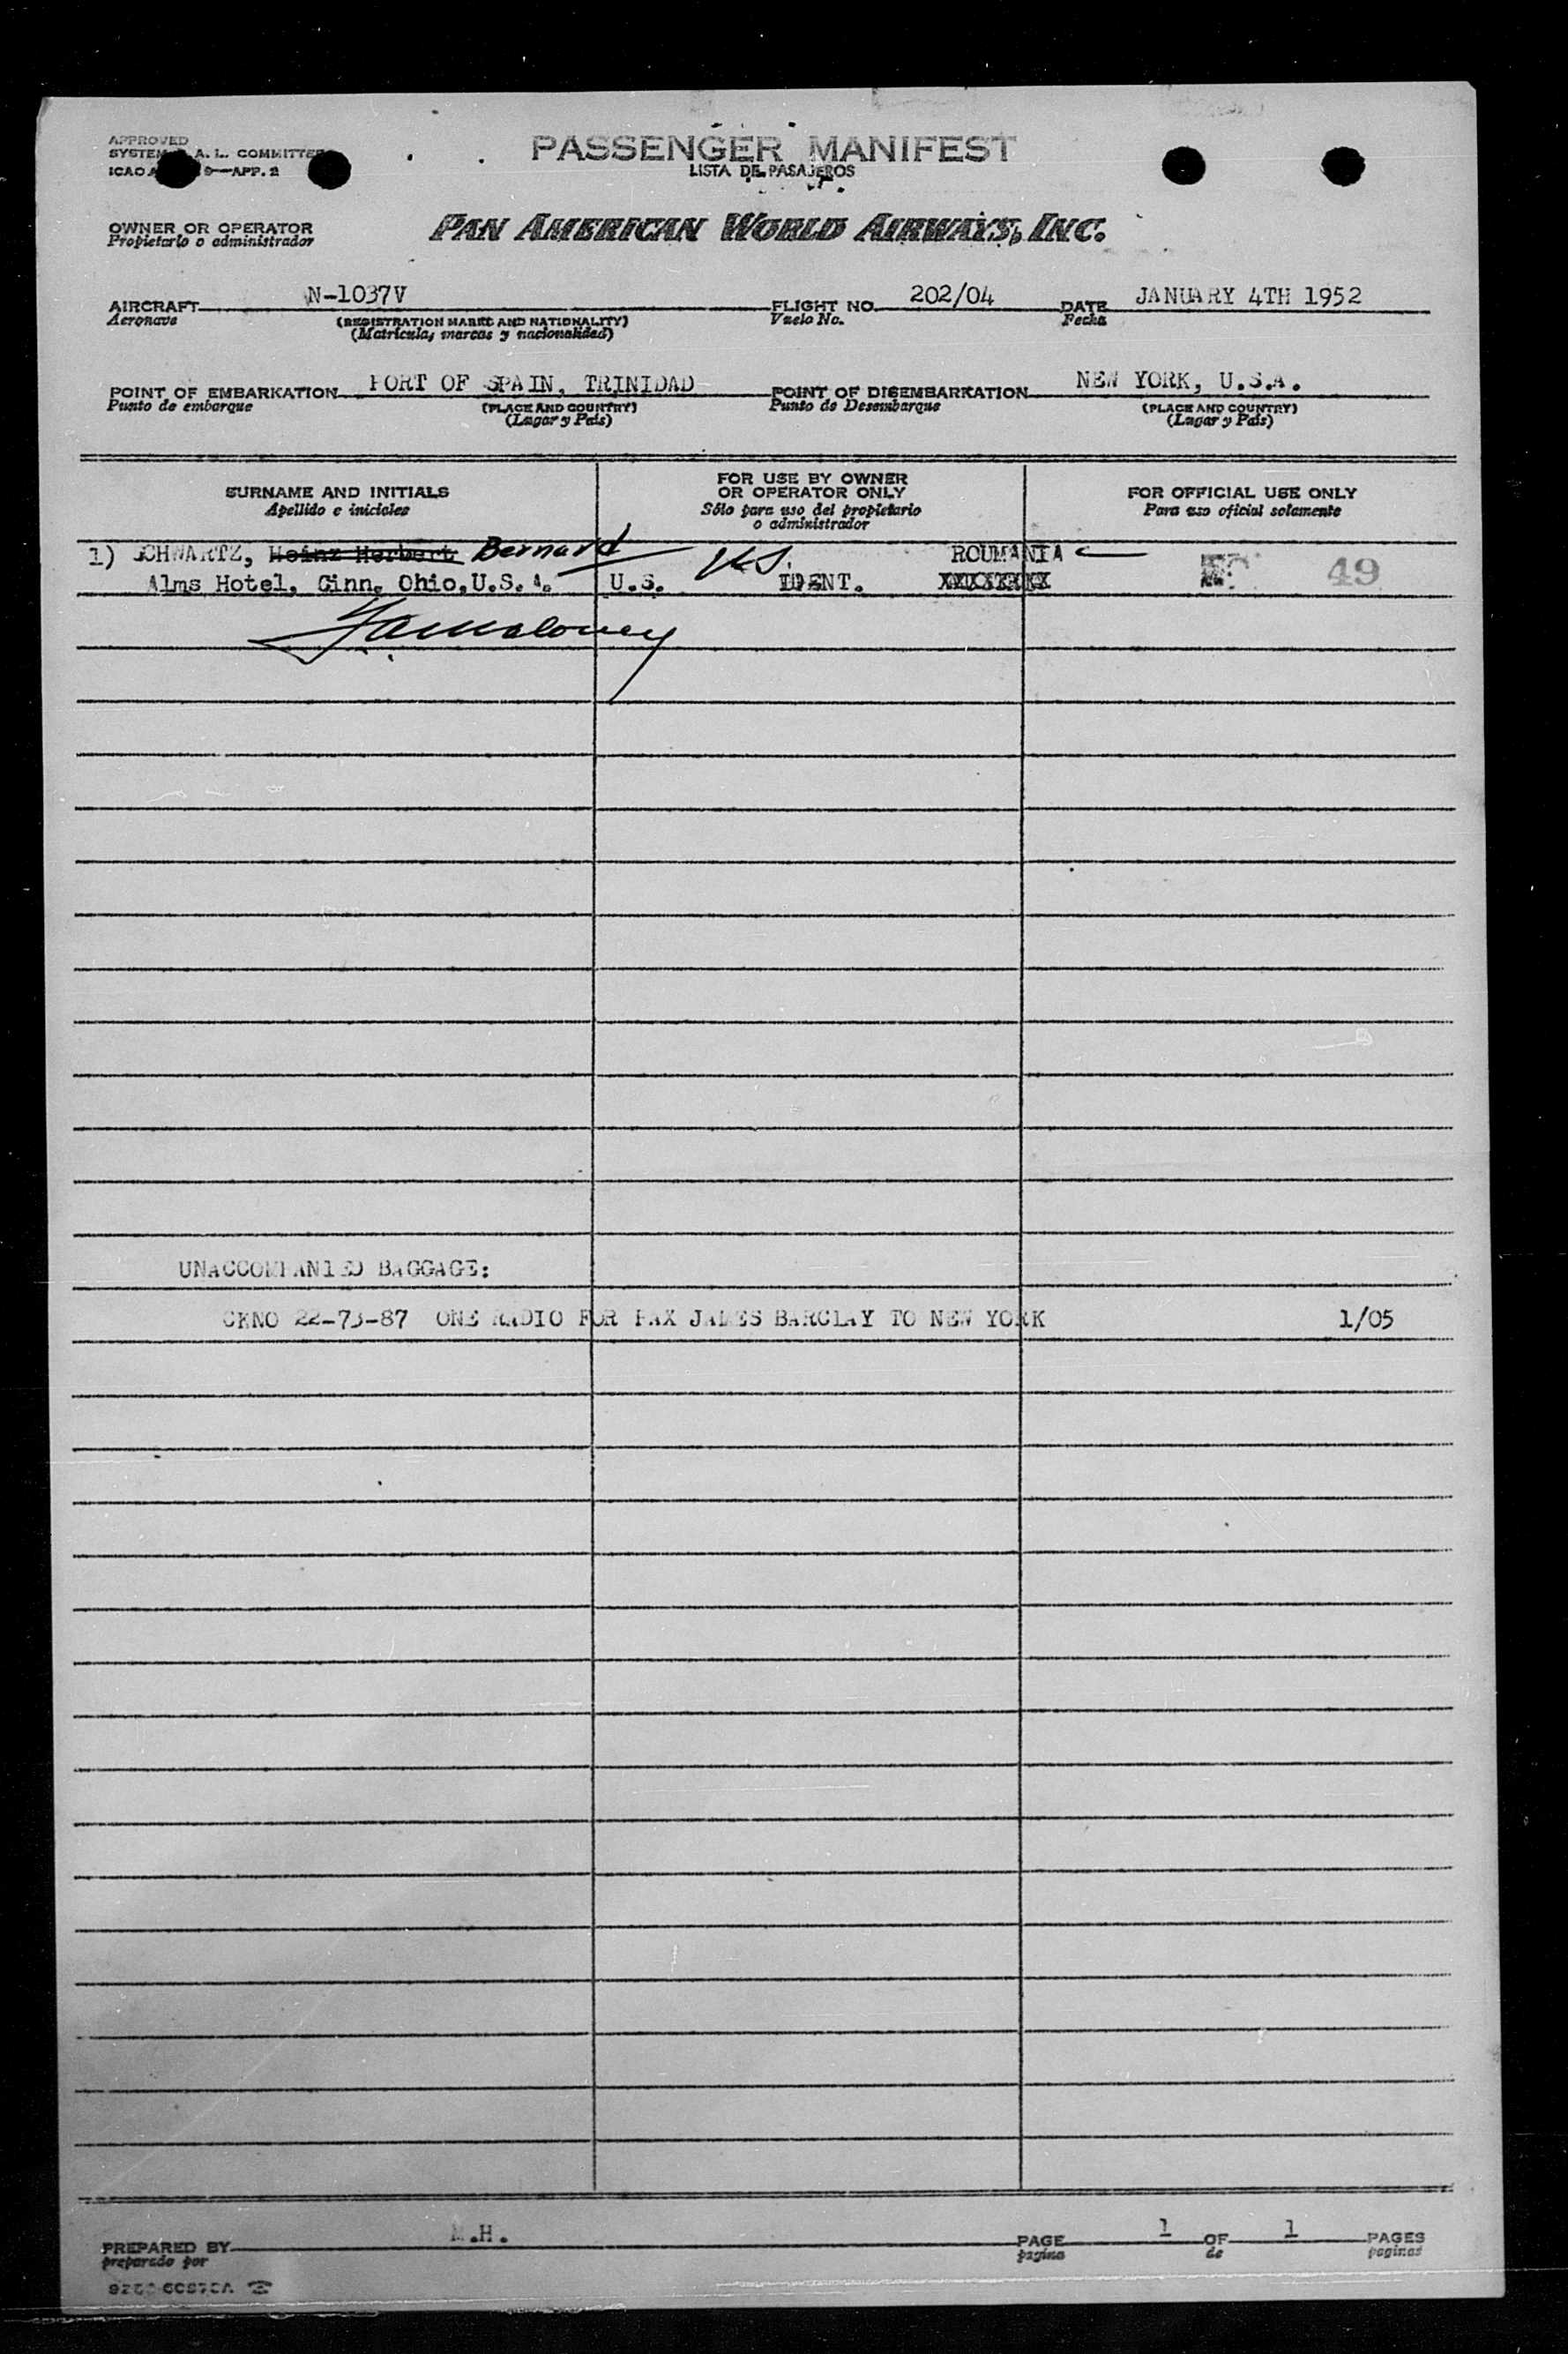 APPROVED
SYSTEM A. L. COMMITTEE
ICAO 9—APP. 2
PASSENGER MANIFEST
LISTA DE PASAJEROS
OWNER OR OPERATOR
Propietario o administrador
PAN AMERICAN WORLD AIRWAYS, INC.
AIRCRAFT N-1037V FLIGHT NO. 202/04 DATE JANUARY 4TH 1952
Aeronave (REGISTRATION MARKS AND NATIONALITY) Vuelo No. Fecha
(Matricula, marcas y nacionalidad)
POINT OF EMBARKATION PORT OF SPAIN, TRINIDAD POINT OF DISEMBARKATION NEW YORK, U.S.A.
Punto de embarque (PLACE AND COUNTRY) Punto de Desembarque (PLACE AND COUNTRY)
(Lugar y País) (Lugar y País)
SURNAME AND INITIALS
Apellido e iniciales
FOR USE BY OWNER
OR OPERATOR ONLY
Sólo para uso del propietario
o administrador
FOR OFFICIAL USE ONLY
Para uso oficial solamente
1) SCHWARTZ, Heinz Herbert Bernard U.S. ROUMANIA
Alms Hotel, Cinn, Ohio, U.S.A. U.S. IDENT. XXXXXXXX 49
UNACCOMPANIED BAGGAGE:
CKNO 22-73-87 ONE RADIO FOR PAX JAMES BARCLAY TO NEW YORK 1/05
PREPARED BY M.H. PAGE 1 OF 1 PAGES
preparado por pagina de paginas